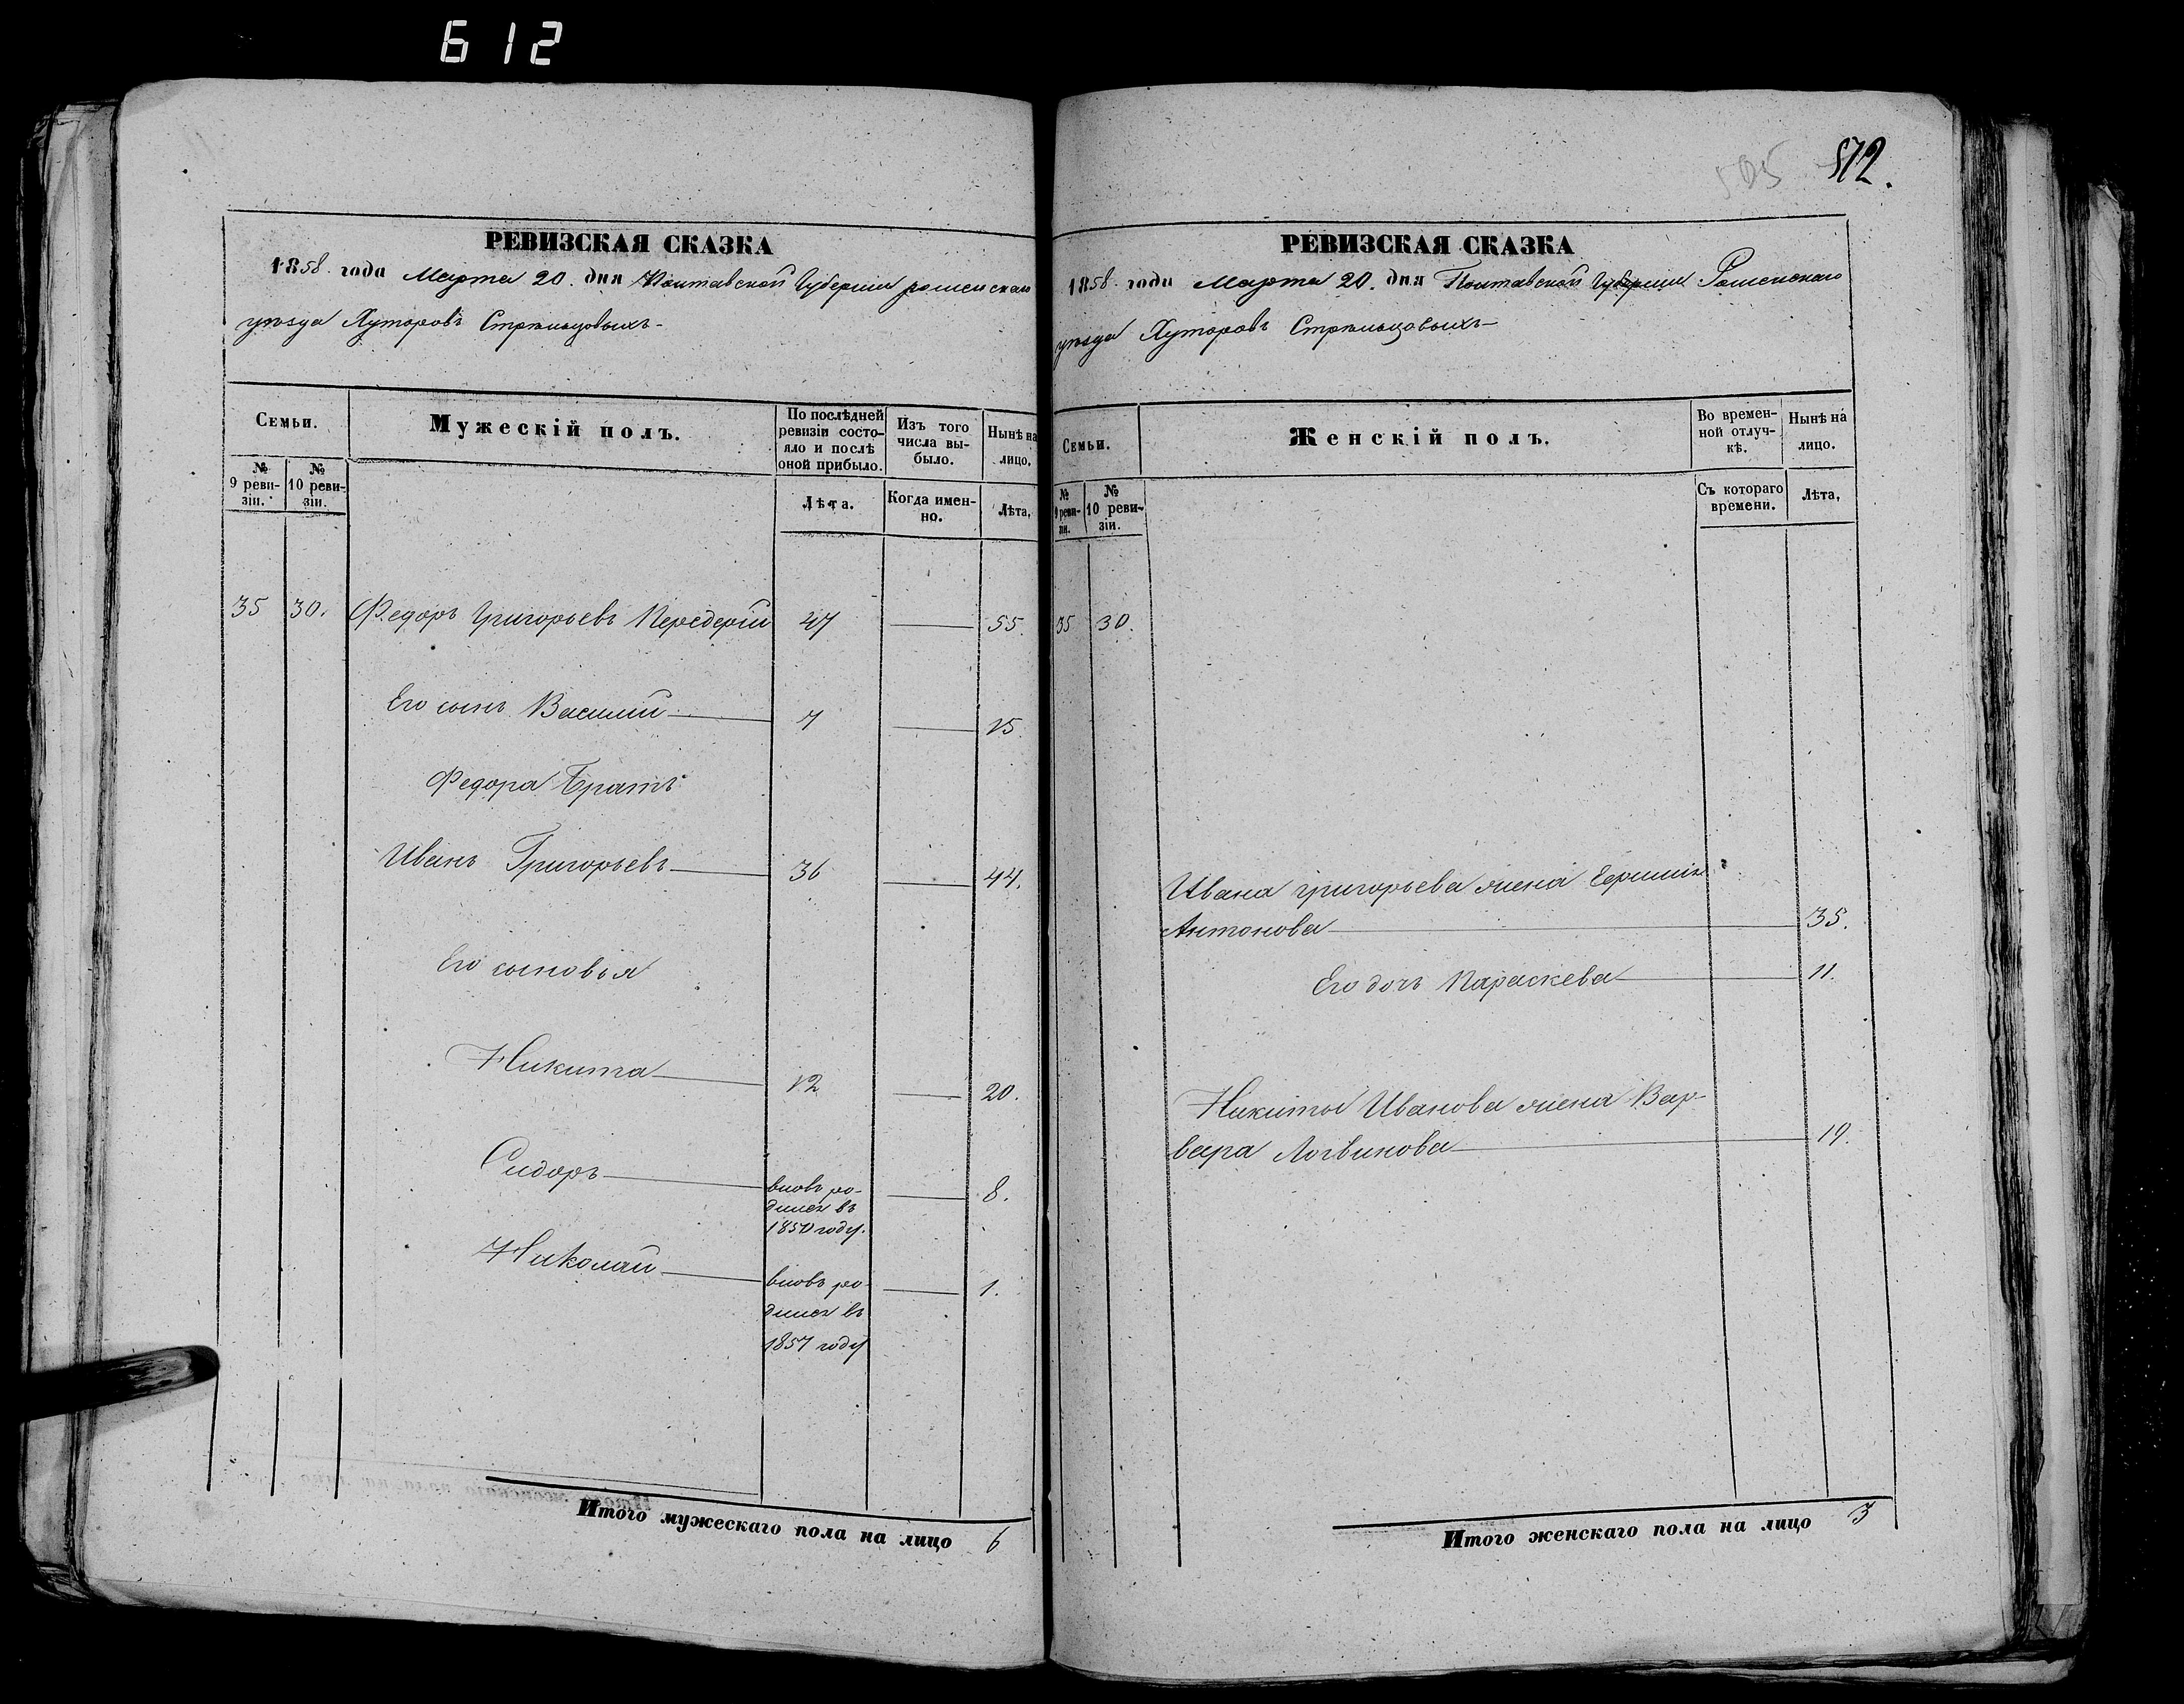 612
РЕВИЗСКАЯ СКАЗКА
1858 года Марта 20. дня Полтавской Губернии роменскаго
уѣзда Хуторовъ Стрѣльцовыхъ
Семьи.
Мужескій полъ.
По послѣдней ревизіи состояло и послѣ оной прибыло.
Изъ того числа выбыло.
Нынѣ на лицо.
№ 9 ревизіи.
№ 10 ревизіи.
Лѣта.
Когда именно.
Лѣта,
35 30. Федоръ Григорьевъ Передерій 47 — 55.
Его сынъ Василій — 7 — 15.
Федора Братъ
Иванъ Григорьевъ — 36 — 44.
Его сыновья
Никита — 12 — 20.
Сидоръ — вновь ро- — 8.
дился въ
1850 году.
Николай — вновь ро- — 1.
дился въ
1857 году
Итого мужескаго пола на лицо 6
505 572.
РЕВИЗСКАЯ СКАЗКА
1858 года Марта 20. дня Полтавской Губерніи Роменскаго
уѣзда Хуторовъ Стрѣльцовыхъ
Семьи.
Женскій полъ.
Во временной отлучкѣ.
Нынѣ на лицо.
№ 9 ревизіи.
№ 10 ревизіи.
Съ котораго времени.
Лѣта,
35 30.
Ивана григорьева жена
Антонова — 35.
Его дочь Параскева — 11.
Никиты Иванова жена Вар-
вара Логвинова — 19.
Итого женскаго пола на лицо 3